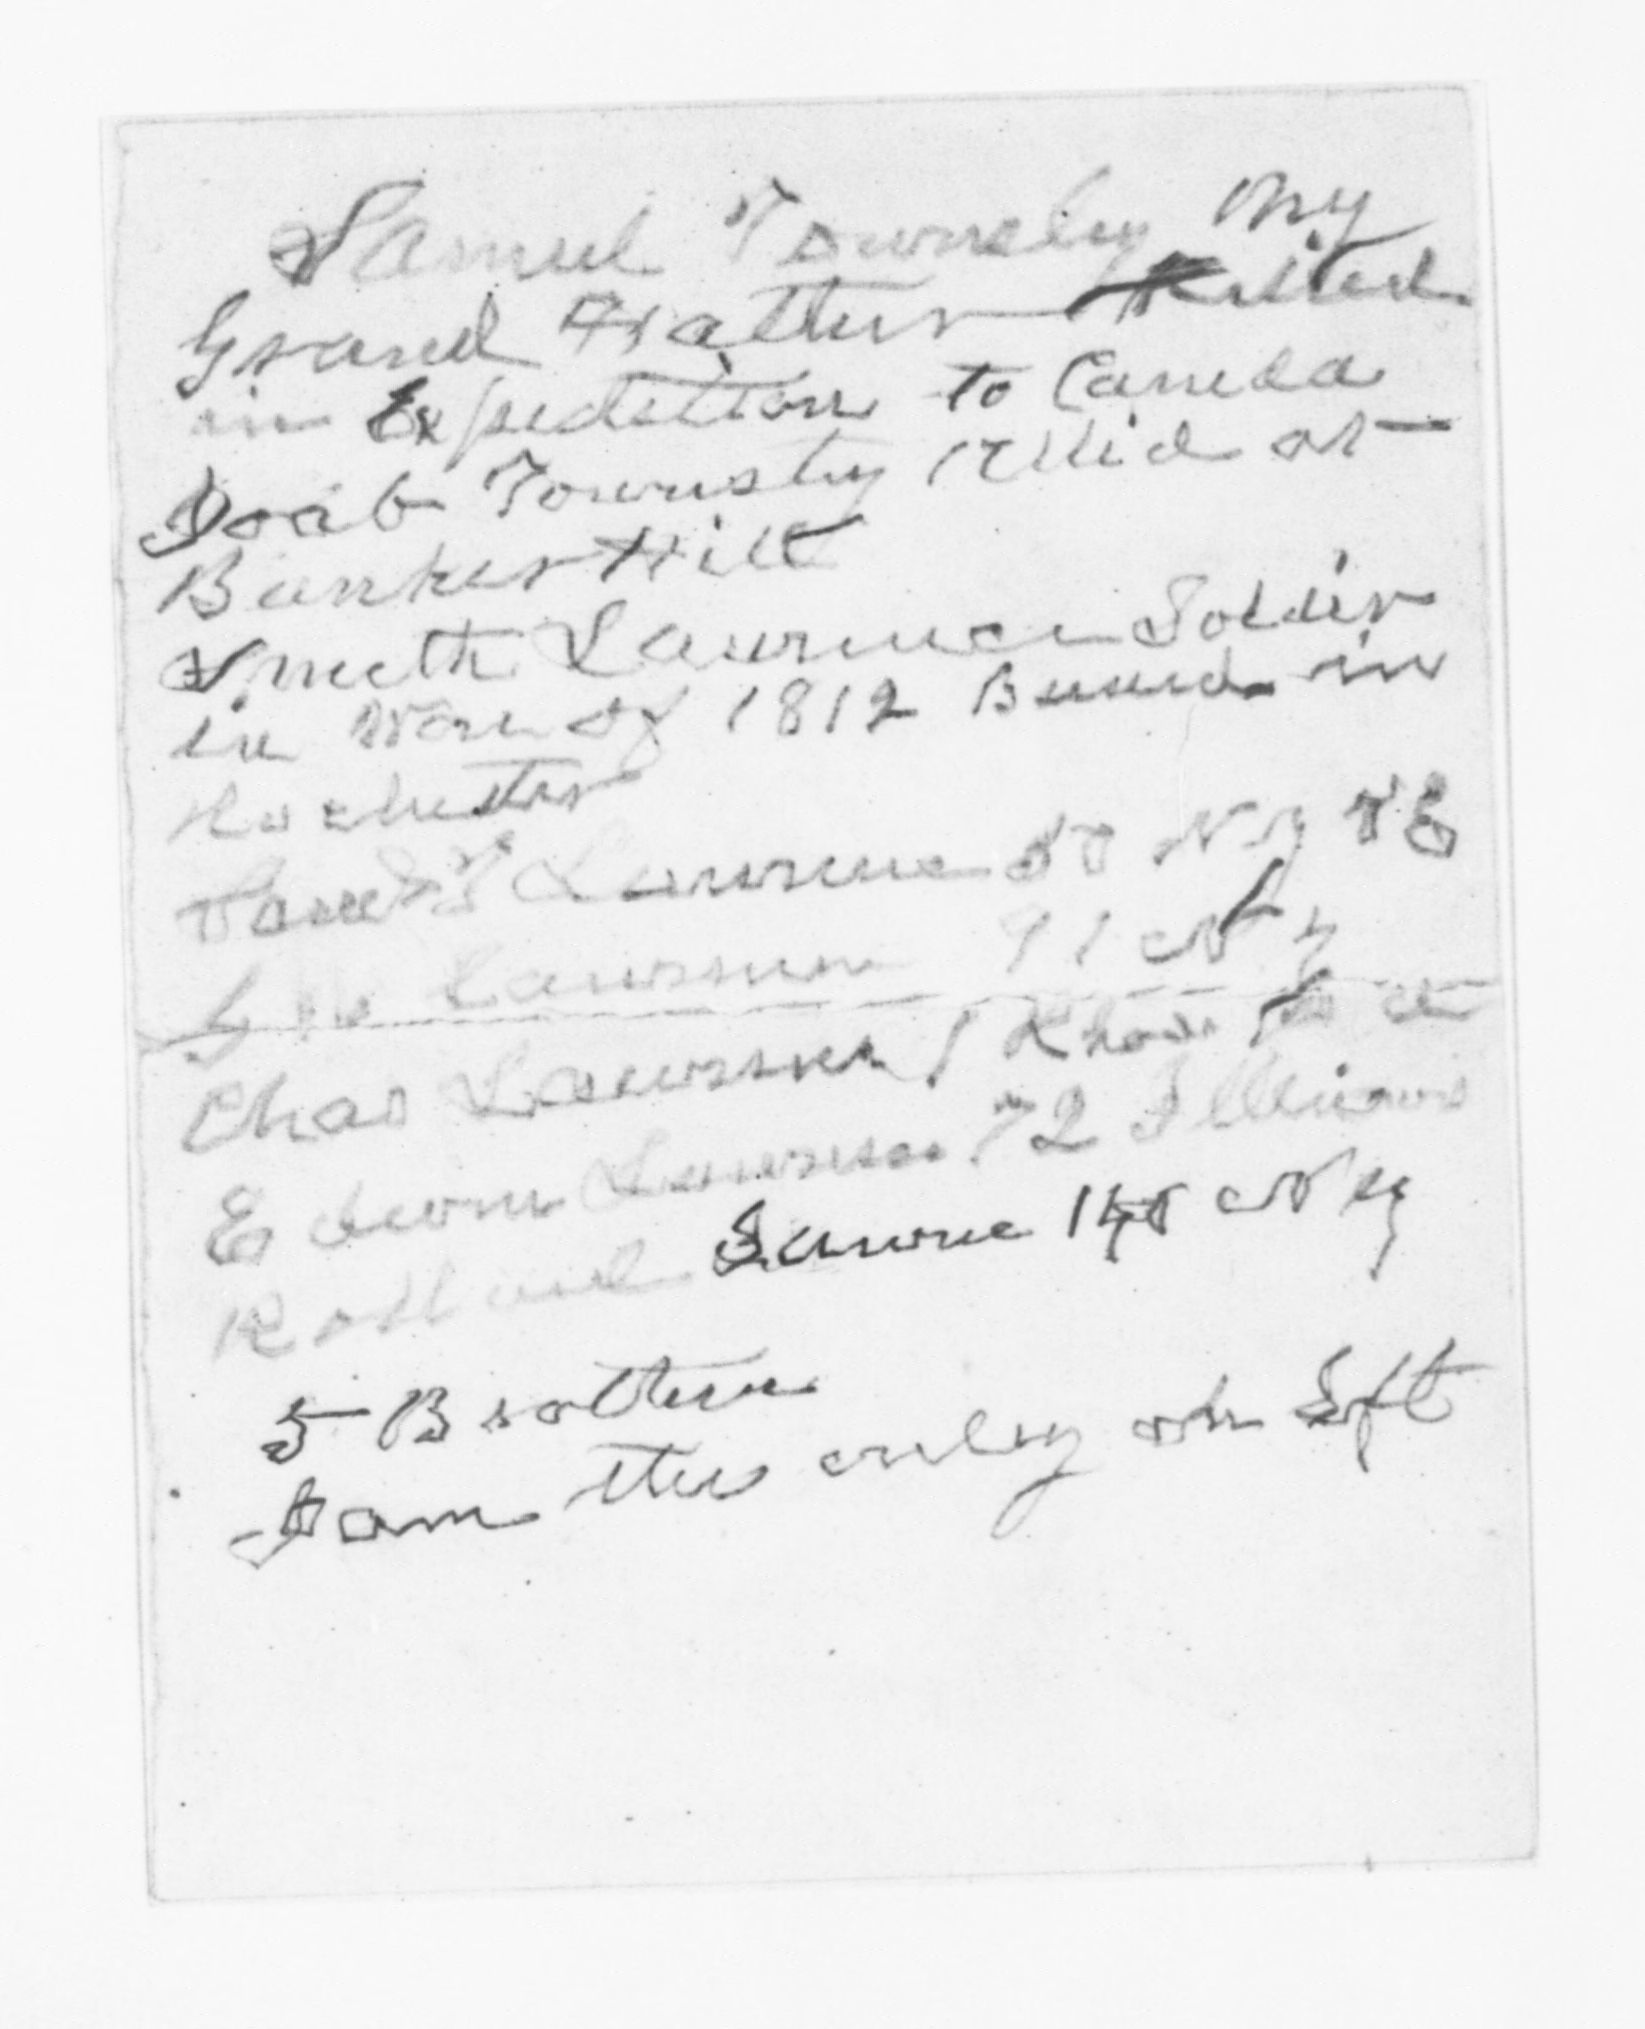 Samuel Townsley My
Grand Father Killed
in Expedition to Caneda
Joab Townsley Killed at
Bunker Hill
Smith Lawrence Soldier
in War of 1812 Buried in
Rochester
Saml T Lawrence 50 N Y V E
Lawrence 91 N Y
Chas Lawrence 1 Rhode
Edwin Lawrence 72 Illinois
Rolland Lawrence 140 N Y
5 Brothers
I am the only one Left